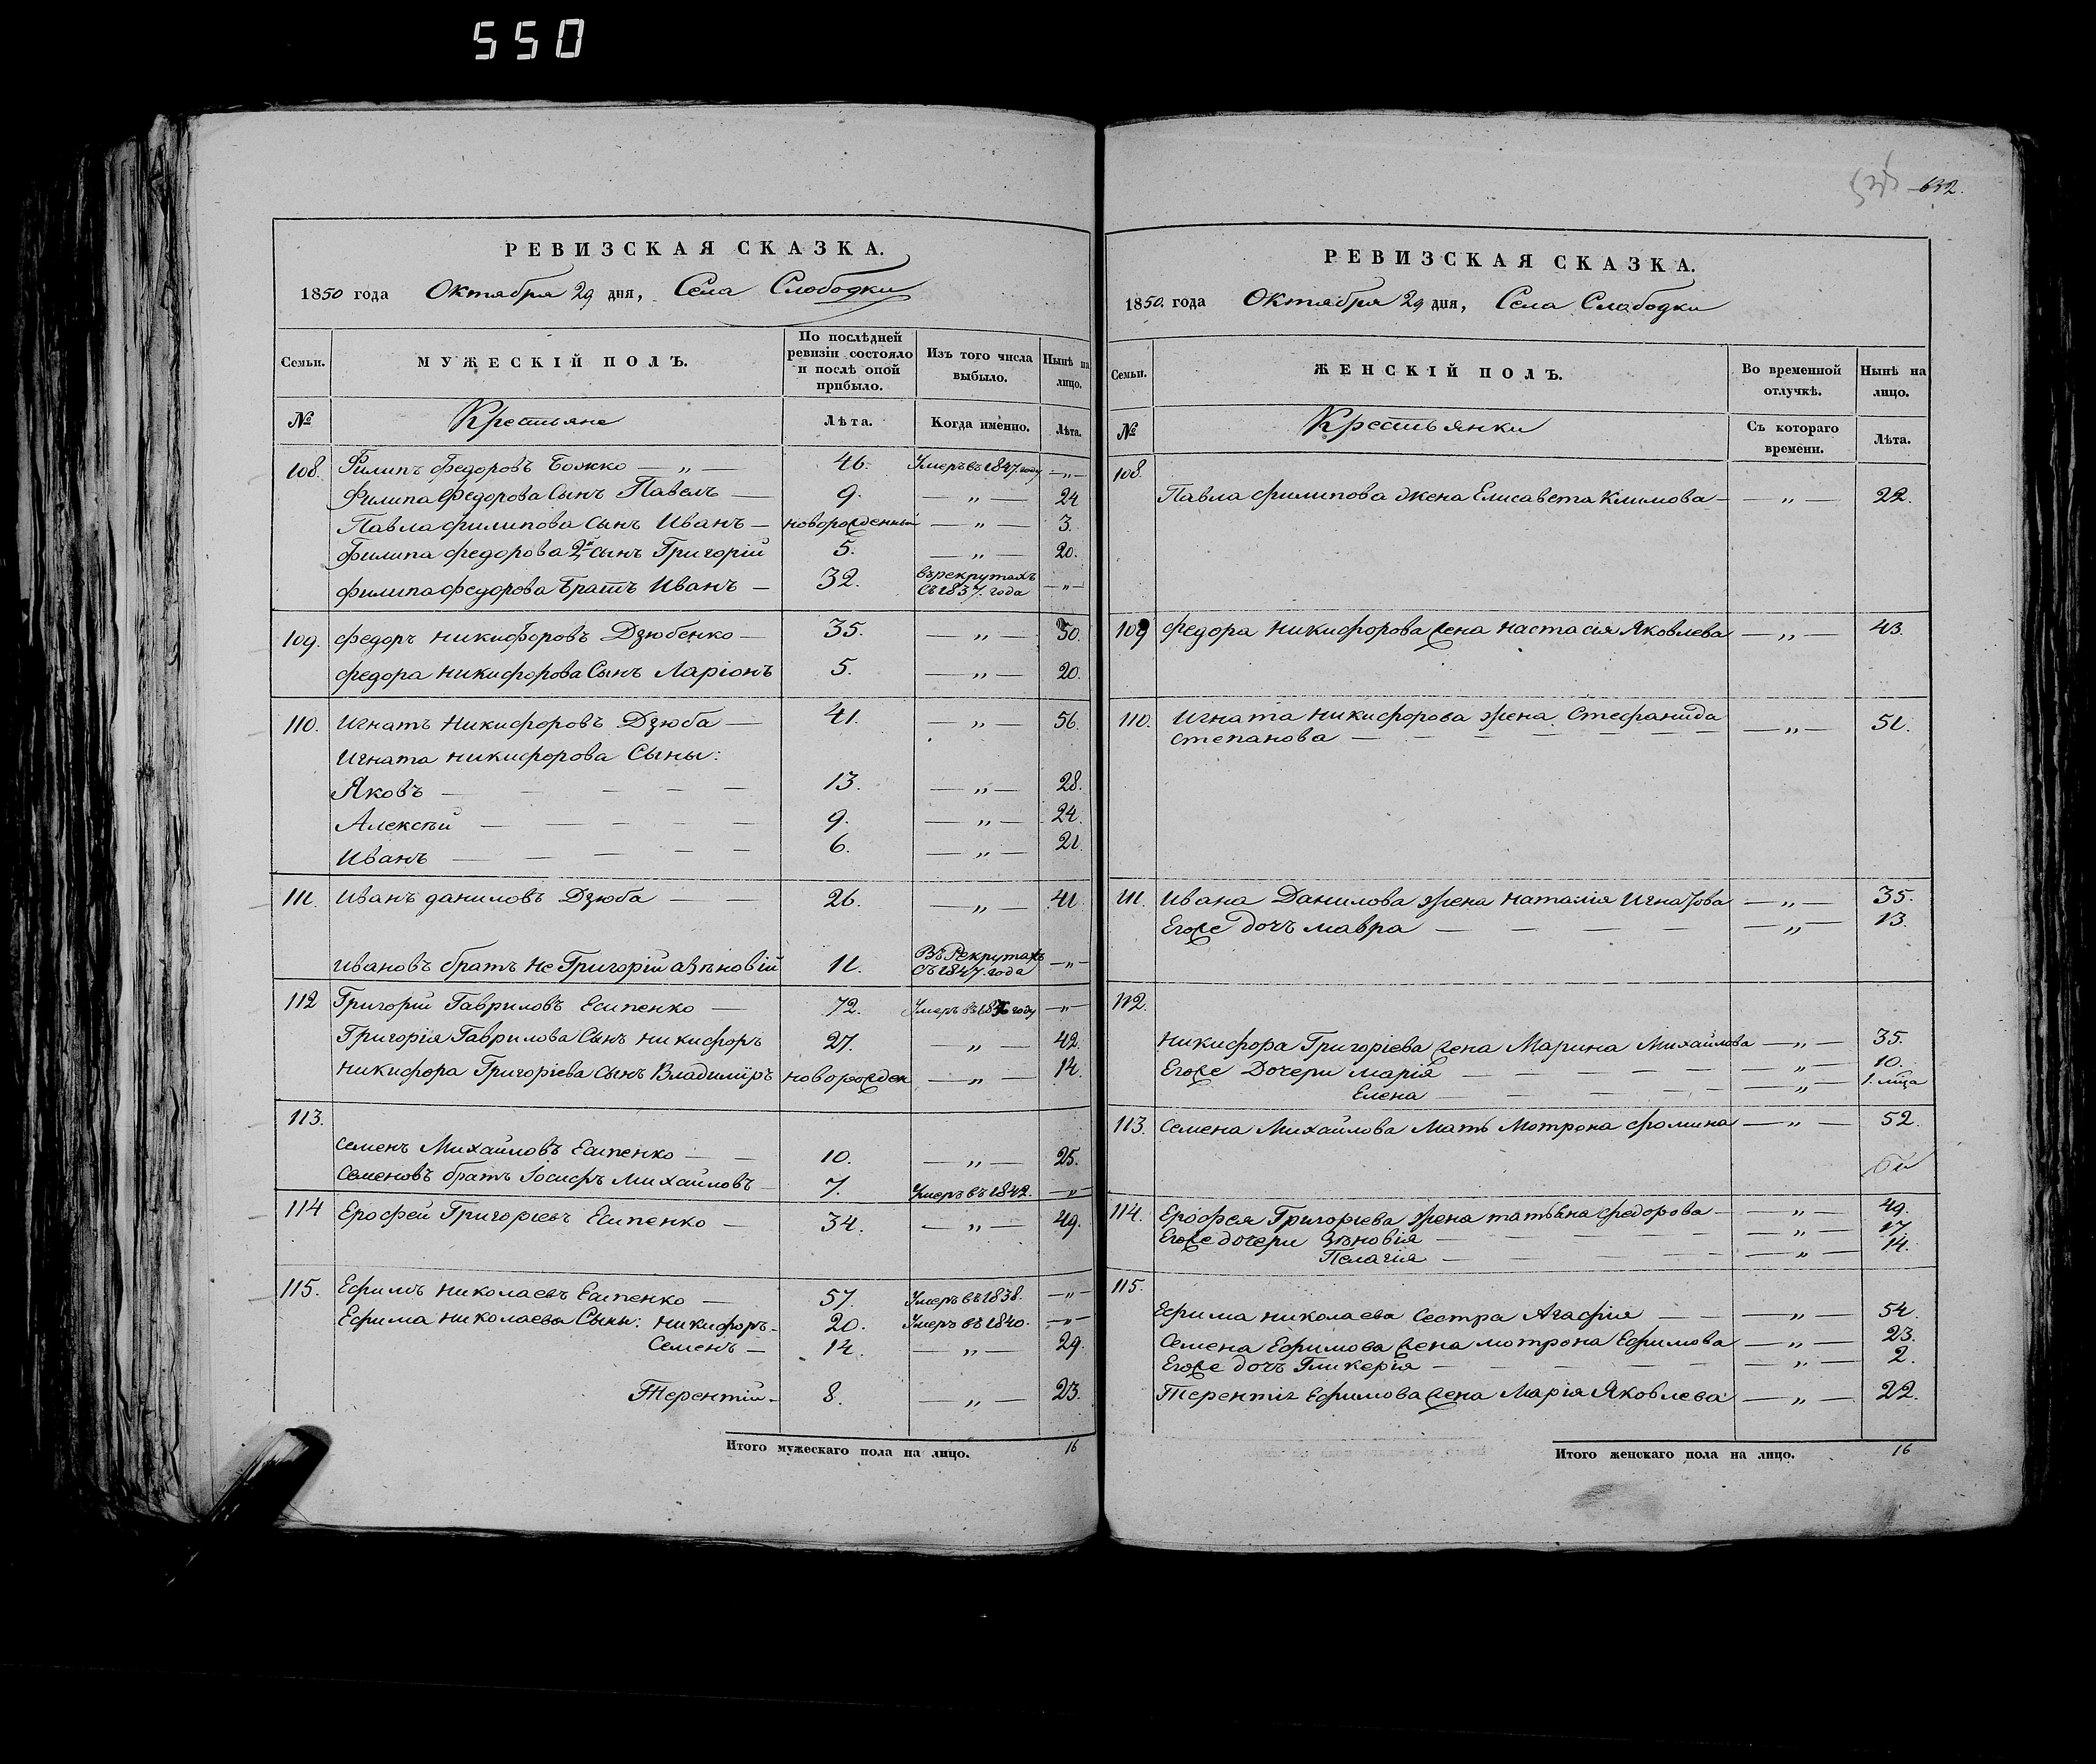 550
632.
РЕВИЗСКАЯ СКАЗКА.
1850 года Октября 29 дня, Села Слободки
Семьи. МУЖЕСКІЙ ПОЛЪ. По послѣдней ревизіи состояло и послѣ оной прибыло. Изъ того числа выбыло. Нынѣ на лицо.
№ Крестьяне Лѣта. Когда именно. Лѣта.
108. Филипъ Федоровъ Божко — „ — 46. Умеръ въ 1847 году — „ —
Филипа Федорова Сынъ Павелъ — 9. — „ — 24
Павла Филипова Сынъ Иванъ — новорожденный — „ — 3.
Филипа Федорова 2й сынъ Григорій 5. — „ — 20.
Филипа Федорова Братъ Иванъ — 32. въ рекрутахъ съ 1837. года — „ —
109. Федоръ Никифоровъ Дзюбенко — 35. — „ — 50.
Федора Никифорова Сынъ Ларіонъ 5. — „ — 20.
110. Игнатъ Никифоровъ Дзюба — 41. — „ — 56.
Игната Никифорова Сыны:
Яковъ — 13. — „ — 28.
Алексѣй — 9. — „ — 24.
Иванъ — 6. — „ — 21.
111. Иванъ Даниловъ Дзюба — 26. — „ — 41
Ивановъ братъ не Григорій а Зѣновій 11. Въ Рекрутахъ съ 1847. года — „ —
112 Григорій Гавриловъ Есипенко — 72. Умеръ въ году — „ —
Григорія Гаврилова Сынъ Никифоръ 27. — „ — 42.
Никифора Григоріева Сынъ Владиміръ новорожден — „ — 14.
113.
Семенъ Михайловъ Есипенко — 10. — „ — 25.
Семеновъ братъ Іосифъ Михайловъ 7. Умеръ въ 1842. — „ —
114 Ерофей Григорьевъ Есипенко — 34. — „ — 49.
115. Ефимъ Николаевъ Есипенко — 57. Умеръ въ 1838. — „ —
Ефима Николаева Сыны: Никифоръ — 20. Умеръ въ 1840. — „ —
Семенъ — 14. — „ — 29.
Терентій — 8. — „ — 23.
Итого мужескаго пола на лицо. 16
РЕВИЗСКАЯ СКАЗКА.
1850. года Октября 29 дня, Села Слободки
Семьи. ЖЕНСКІЙ ПОЛЪ. Во временной отлучкѣ. Нынѣ на лицо.
№ Крестьянки Съ котораго времени. Лѣта.
108.
Павла Филипова жена Елисавета Климова — „ — 22.
109 Федора Никифорова жена Настасія Яковлева — „ — 43.
110. Игната Никифорова жена Стефанида
Степанова — „ — 51.
111. Ивана Данилова жена Наталія Игнатова — „ — 35.
Егоже дочъ Мавра — „ — 13.
112.
Никифора Григоріева жена Марина Михайлова — „ — 35.
Егоже Дочери Марія — „ — 10.
Елена — „ — 1. мца
113. Семена Михайлова Мать Мотрона Фомина — „ — 52.
114. Ерофея Григорьева жена Татьяна Федорова — „ — 49.
Егоже дочери Зѣновія — „ — 17.
Пелагія — „ — 14.
115.
Ефима Николаева Сестра Агафія — „ — 54.
Семена Ефимова жена Мотрона Ефимова — „ — 23.
Егоже дочъ Гликерія — „ — 2.
Терентія Ефимова жена Марія Яковлева — „ — 22.
Итого женскаго пола на лицо. 16